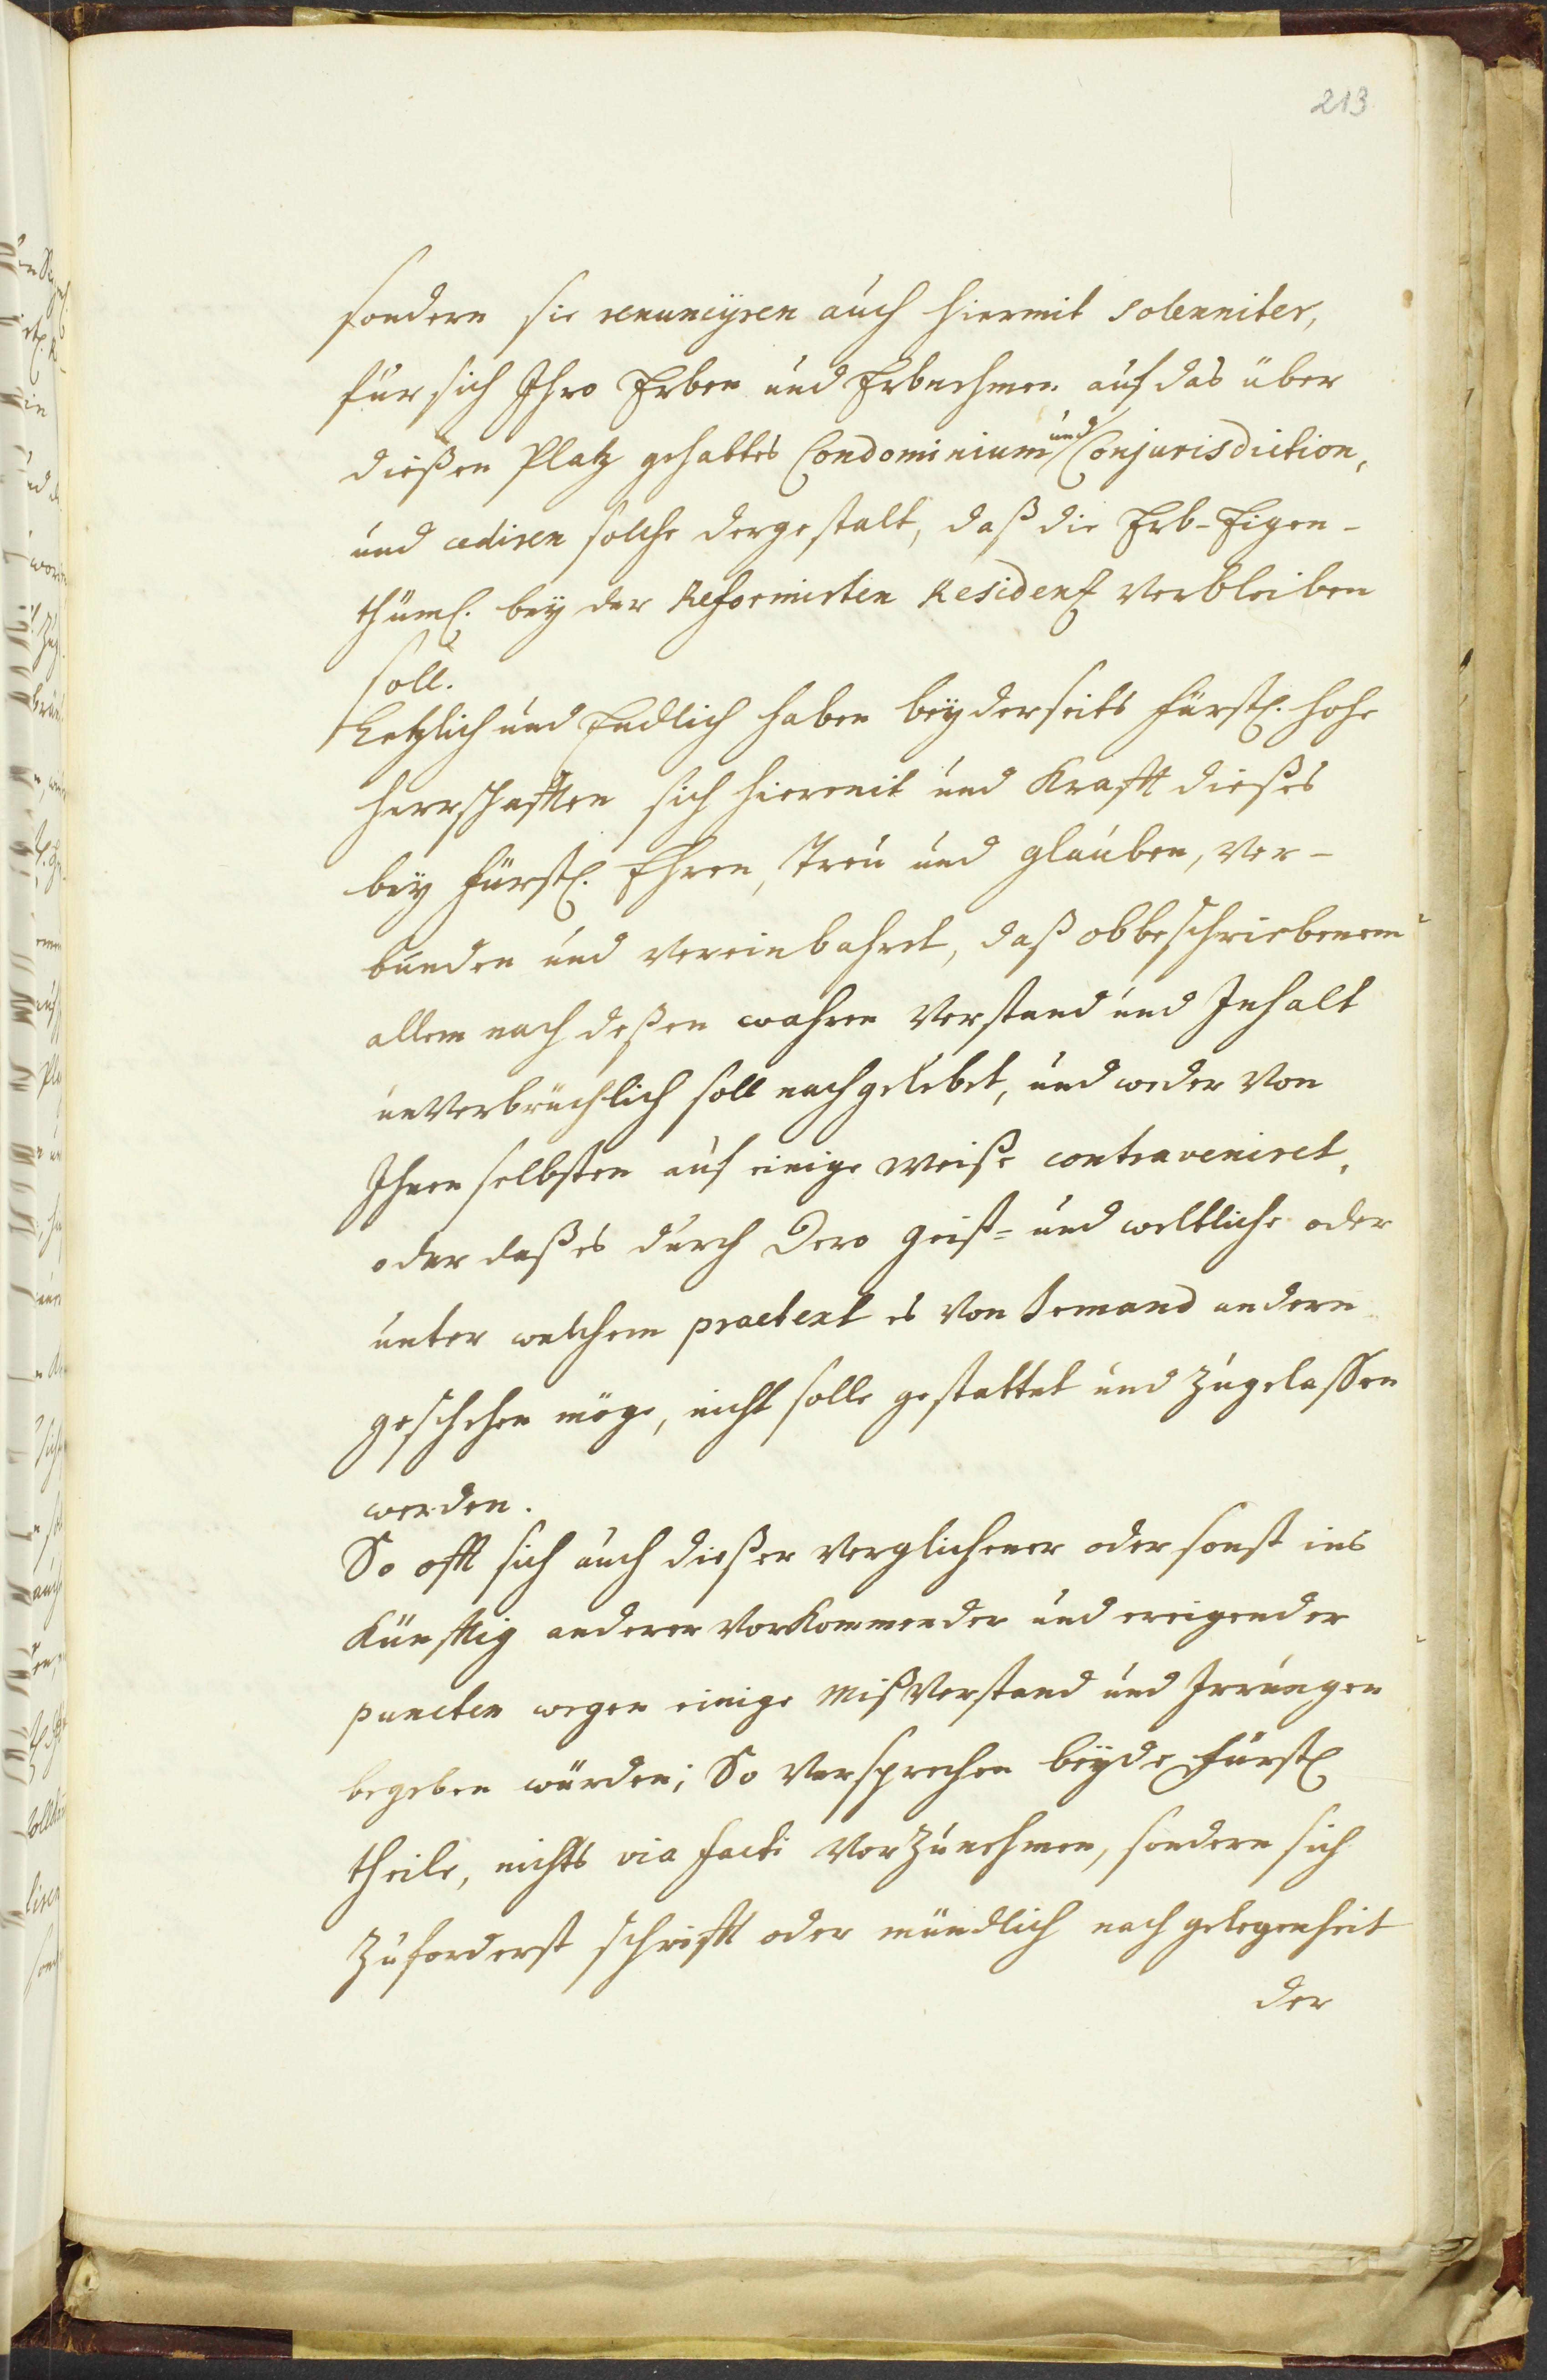 213
sondern sie renuncÿren auch hiermit solenniter,
für sich Ihro Erben und Erbnehmer auf das über
dießen Platz gehabtes Condominium und Conjurisdiction,
und cediren solche dergestalt, daß die Erb-Eigen-
thüml. bey der Reformirten Residentz verbleiben
soll.
Letzlich und Endlich haben beÿderseits Fürstl. hohe
Herrschafften sich hiermit und Krafft dießes
beÿ Fürstl. Ehren, Treu und glauben, ver-
bunden und vereinbahret, daß obbeschriebenem
allem nach deßen wahren Verstand und Inhalt
unverbrüchlich soll nachgelebet, und weder von
Ihnen selbsten auf einige weiße contraveniret,
oder daß es durch Dero geist- und weltliche oder
unter welchem praetext es von Jemand andern
geschehen möge, nicht solle gestattet und zugelassen
werden.
So offt sich auch dießer verglichener oder sonst ins
Künfftig anderer vorkommender und ereigender
puncten wegen einige Mißverstand und Irrungen
begeben würden; So versprechen beÿde Fürstl
theile, nichts via facti vorzunehmen, sondern sich
zuforderst schrifft oder mündlich nach gelegenheit
der